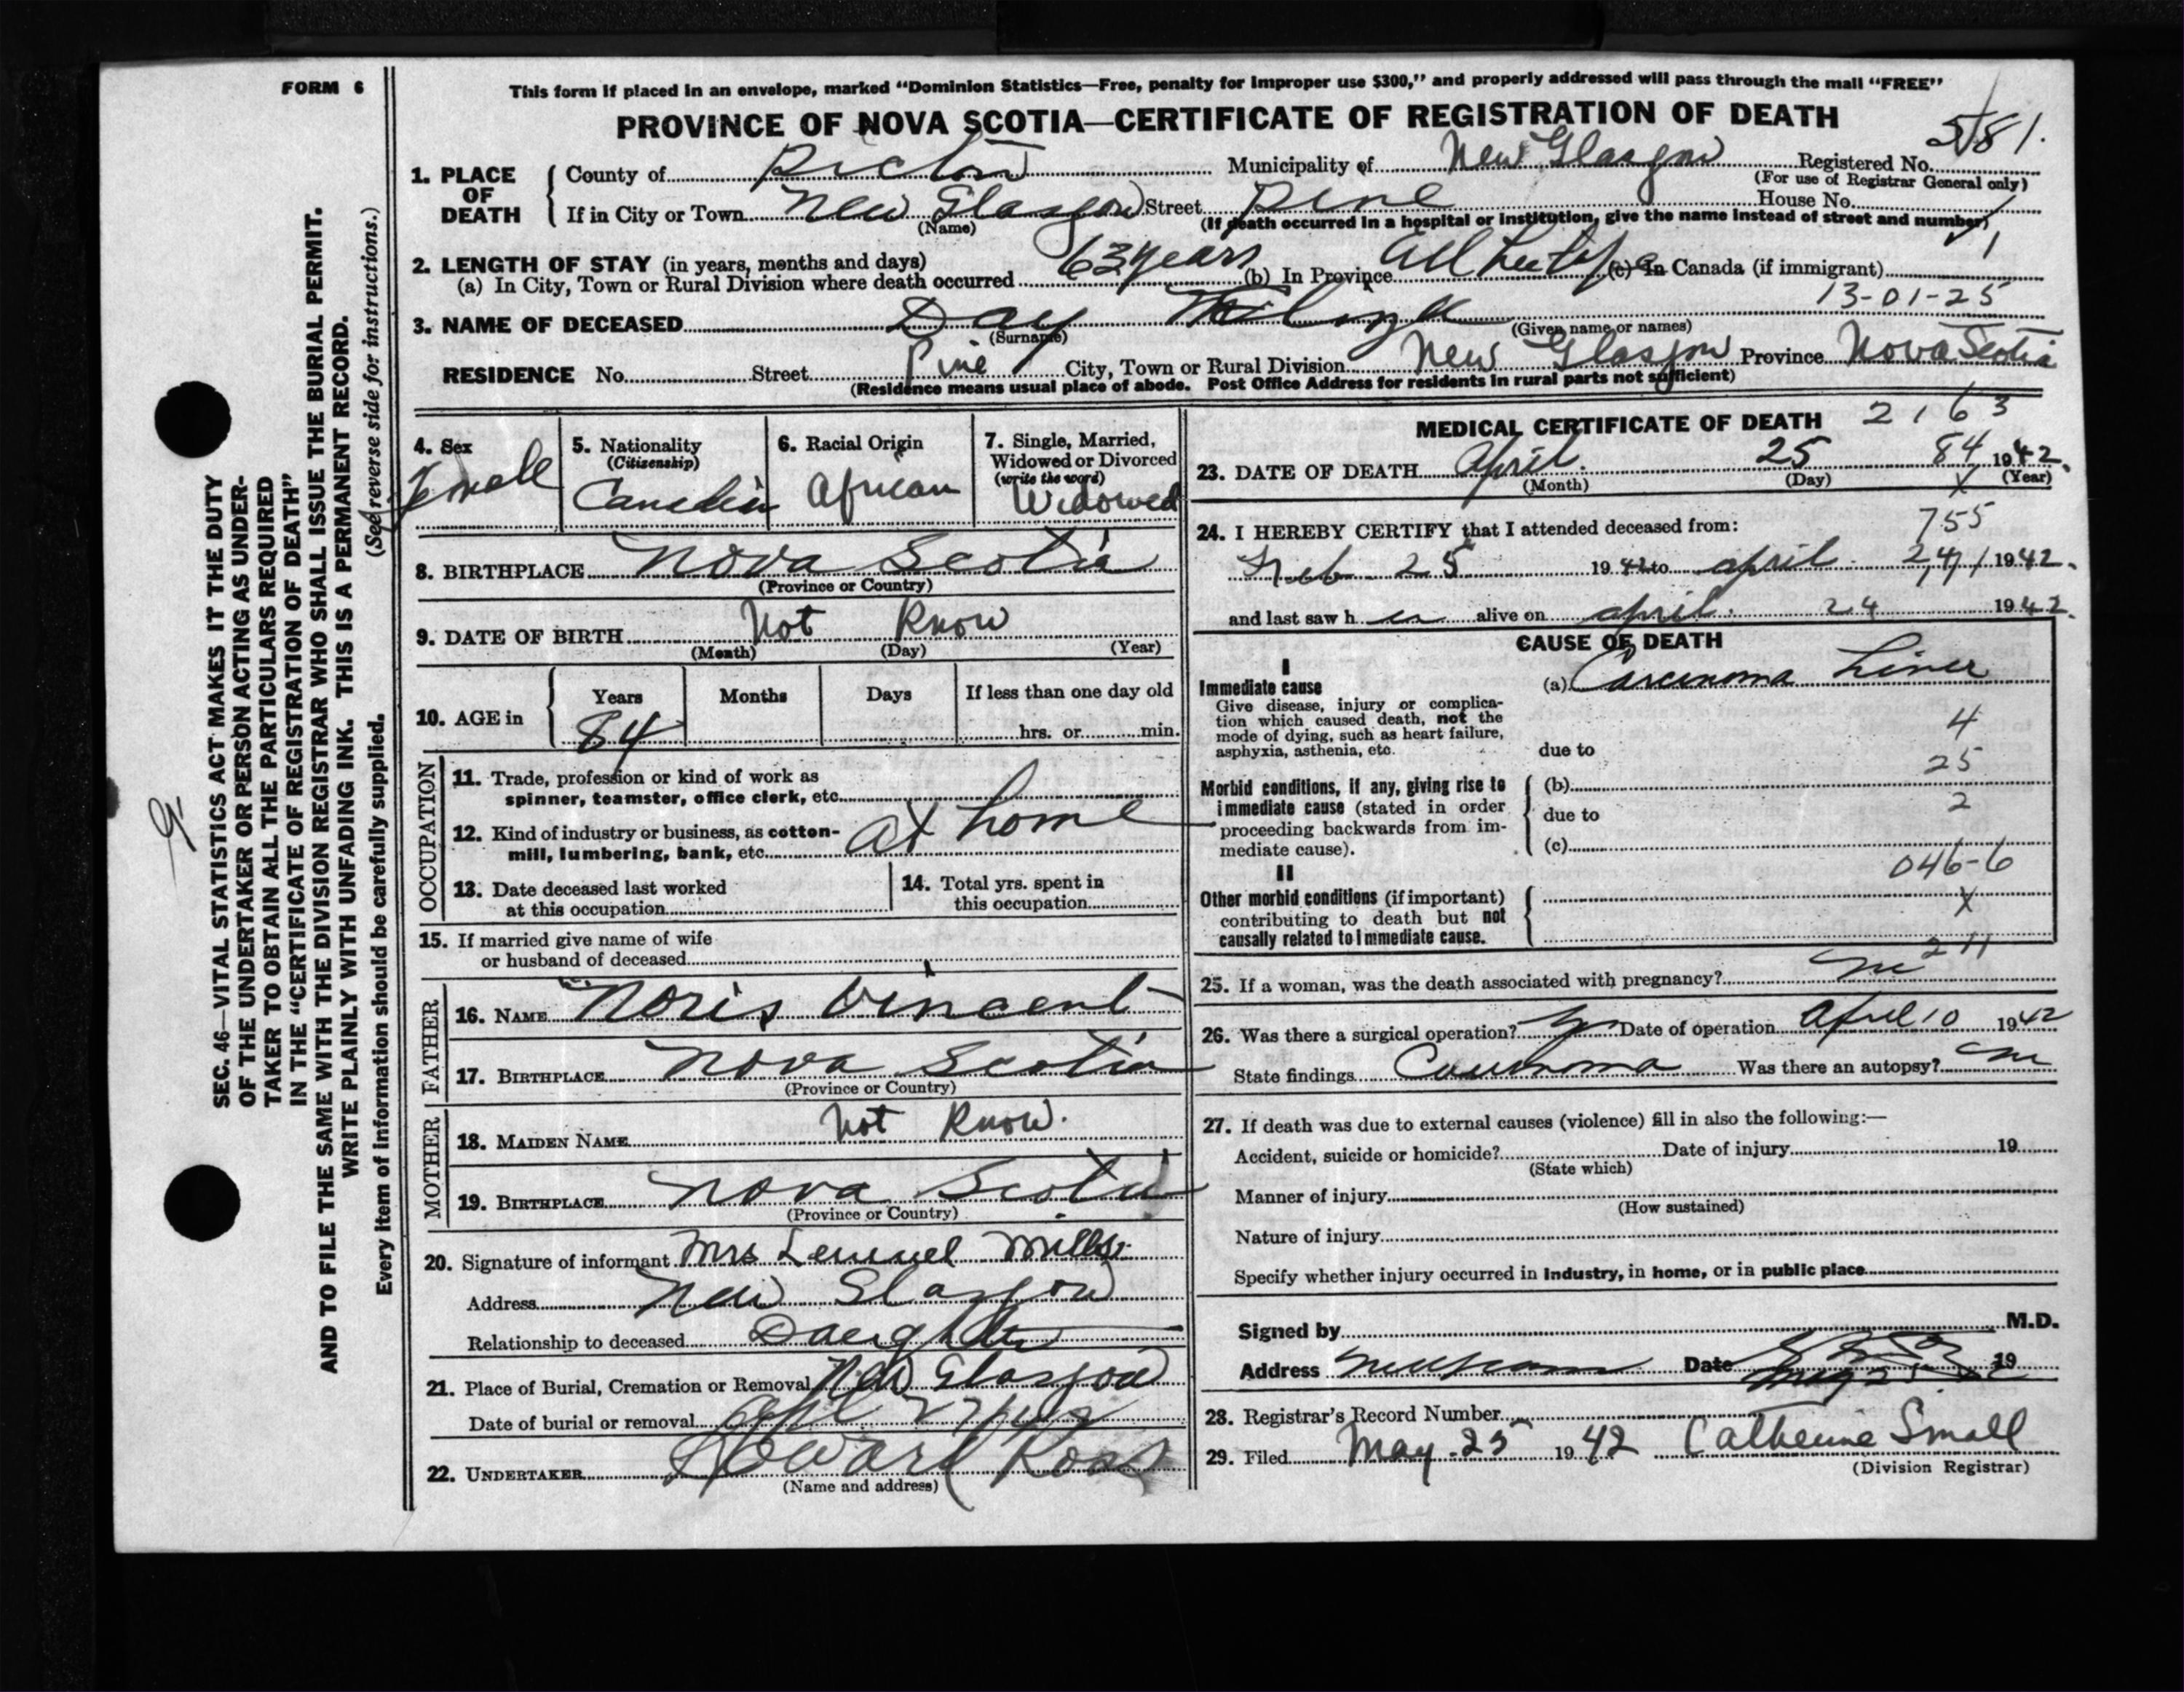 FORM 6
This form if placed in an envelope, marked "Dominion Statistics—Free, penalty for improper use $300," and properly addressed will pass through the mail "FREE"
PROVINCE OF NOVA SCOTIA—CERTIFICATE OF REGISTRATION OF DEATH
581.
1. PLACE OF DEATH
County of Pictou Municipality of New Glasgow Registered No.
(For use of Registrar General only)
If in City or Town New Glasgow Street Pine House No.
(Name) (If death occurred in a hospital or institution, give the name instead of street and number)
2. LENGTH OF STAY (in years, months and days)
(a) In City, Town or Rural Division where death occurred 63 years (b) In Province All her life (c) In Canada (if immigrant)
13-01-25
3. NAME OF DECEASED Day
(Surname) (Given name or names)
RESIDENCE No. Street Pine City, Town or Rural Division New Glasgow Province Nova Scotia
(Residence means usual place of abode. Post Office Address for residents in rural parts not sufficient)
4. Sex Female
5. Nationality (Citizenship) Canadian
6. Racial Origin African
7. Single, Married, Widowed or Divorced (write the word) Widowed
8. BIRTHPLACE Nova Scotia
(Province or Country)
9. DATE OF BIRTH Not Know
(Month) (Day) (Year)
10. AGE in Years Months Days If less than one day old
84 hrs. or min.
OCCUPATION
11. Trade, profession or kind of work as spinner, teamster, office clerk, etc.
12. Kind of industry or business, as cotton-mill, lumbering, bank, etc. At home
13. Date deceased last worked at this occupation
14. Total yrs. spent in this occupation
15. If married give name of wife or husband of deceased
FATHER
16. NAME Noris Vincent
17. BIRTHPLACE Nova Scotia
(Province or Country)
MOTHER
18. MAIDEN NAME Not Know.
19. BIRTHPLACE Nova Scotia
(Province or Country)
20. Signature of informant Mrs Lemuel Mills
Address New Glasgow
Relationship to deceased Daughter
21. Place of Burial, Cremation or Removal New Glasgow
Date of burial or removal Apl 27/42
22. UNDERTAKER Howard Ross
(Name and address)
MEDICAL CERTIFICATE OF DEATH 2163
23. DATE OF DEATH April 25 84 1942.
(Month) (Day) (Year)
X
24. I HEREBY CERTIFY that I attended deceased from:
755
Feb 25 1942 to April 24 1942.
and last saw her alive on April 24 1942.
CAUSE OF DEATH
I
Immediate cause
Give disease, injury or complication which caused death, not the mode of dying, such as heart failure, asphyxia, asthenia, etc.
(a) Carcinoma Liver
4
due to
25
Morbid conditions, if any, giving rise to immediate cause (stated in order proceeding backwards from immediate cause).
(b)
2
due to
(c)
046-6
II
Other morbid conditions (if important) contributing to death but not causally related to immediate cause.
X
211
25. If a woman, was the death associated with pregnancy? no
26. Was there a surgical operation? yes Date of operation April 10 1942
State findings Carcinoma Was there an autopsy? no
27. If death was due to external causes (violence) fill in also the following:—
Accident, suicide or homicide? Date of injury 19
(State which)
Manner of injury
(How sustained)
Nature of injury
Specify whether injury occurred in industry, in home, or in public place
Signed by M.D.
Address Date 19
28. Registrar's Record Number
29. Filed May 25 1942 Catherine Small
(Division Registrar)
SEC. 46—VITAL STATISTICS ACT MAKES IT THE DUTY
OF THE UNDERTAKER OR PERSON ACTING AS UNDER-
TAKER TO OBTAIN ALL THE PARTICULARS REQUIRED
IN THE "CERTIFICATE OF REGISTRATION OF DEATH"
AND TO FILE THE SAME WITH THE DIVISION REGISTRAR WHO SHALL ISSUE THE BURIAL PERMIT.
WRITE PLAINLY WITH UNFADING INK. THIS IS A PERMANENT RECORD.
Every item of information should be carefully supplied. (See reverse side for instructions.)